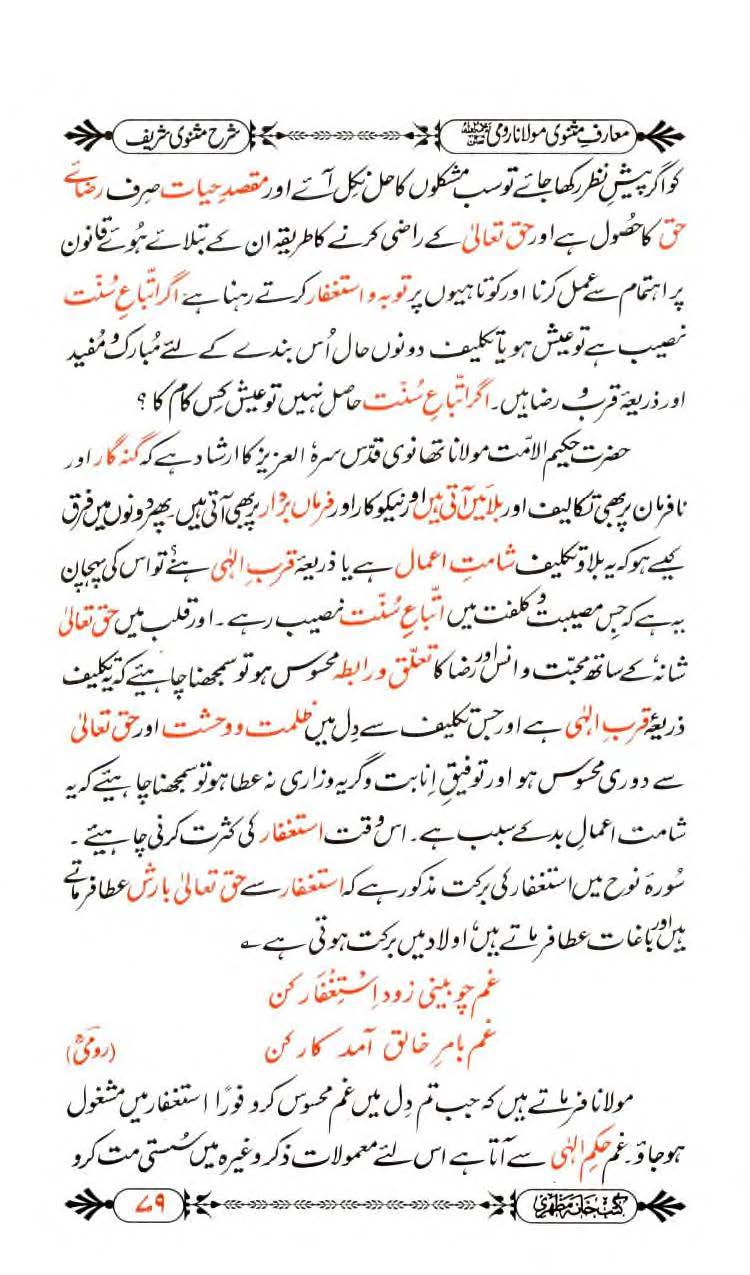 معارفِ مثنوی مولانا رومی رحمۃ اللہ علیہ
شرح مثنوی شریف
کو اگر پیشِ نظر رکھا جائے تو سب مشکلوں کا حل نکل آئے اور مقصدِ حیات صرف رضائے
حق کا حُصول ہے اور حق تعالیٰ کے راضی کرنے کا طریقہ ان کے بتلائے ہُوئے قانون
پر اہتمام سے عمل کرنا اور کوتاہیوں پر توبہ و استغفار کرتے رہنا ہے اگر اتّباعِ سُنّت
نصیب ہے تو عیش ہو یا تکلیف دونوں حال اُس بندے کے لئے مُبارک و مُفید
اور ذریعۂ قرب و رضا ہیں۔ اگر اتّباعِ سُنّت حاصل نہیں تو عیش کس کام کا ؟
حضرت حکیم الامّت مولانا تھانوی قدّس سرہٗ العزیز کا ارشاد ہے کہ گنہگار اور
نافرمان پر بھی تکالیف اور بلائیں آتی ہیں اور نیکو کار اور فرماں بردار پر بھی آتی ہیں۔ پھر دونوں میں فرق
کیسے ہو کہ یہ بلا و تکلیف شامتِ اعمال ہے یا ذریعۂ قربِ الٰہی ہے؟ تو اس کی پہچان
یہ ہے کہ جس مصیبت و کلفت میں اتّباعِ سُنّت نصیب رہے۔ اور قلب میں حق تعالیٰ
شانہٗ کے ساتھ محبّت و انس اور رضا کا تعلّق و رابطہ محسوس ہو تو سمجھنا چاہیئے کہ یہ تکلیف
ذریعۂ قربِ الٰہی ہے اور جس تکلیف سے دِل میں ظلمت و وحشت اور حق تعالیٰ
سے دوری محسوس ہو اور توفیقِ اِنابت و گریہ وزاری نہ عطا ہو تو سمجھنا چاہیئے کہ یہ
شامت اعمالِ بد کے سبب ہے۔ اس وقت استغفار کی کثرت کرنی چاہیئے ۔
سُورۂ نوح میں استغفار کی برکت مذکور ہے کہ استغفار سے حق تعالیٰ بارش عطا فرماتے
ہیں اور باغات عطا فرماتے ہیں، اولاد میں برکت ہوتی ہے ؎
غم چو بینی زود اِسْتِغْفَار کن
غم بامرِ خالق آمد کار کن (رومیؒ)
مولانا فرماتے ہیں کہ جب تم دِل میں غم محسوس کرو فورًا استغفار میں مشغول
ہو جاؤ۔ غم حکمِ الٰہی سے آتا ہے اس لئے معمولات ذکر وغیرہ میں سُستی مت کرو
کتب خانہ مظہری
۷۹